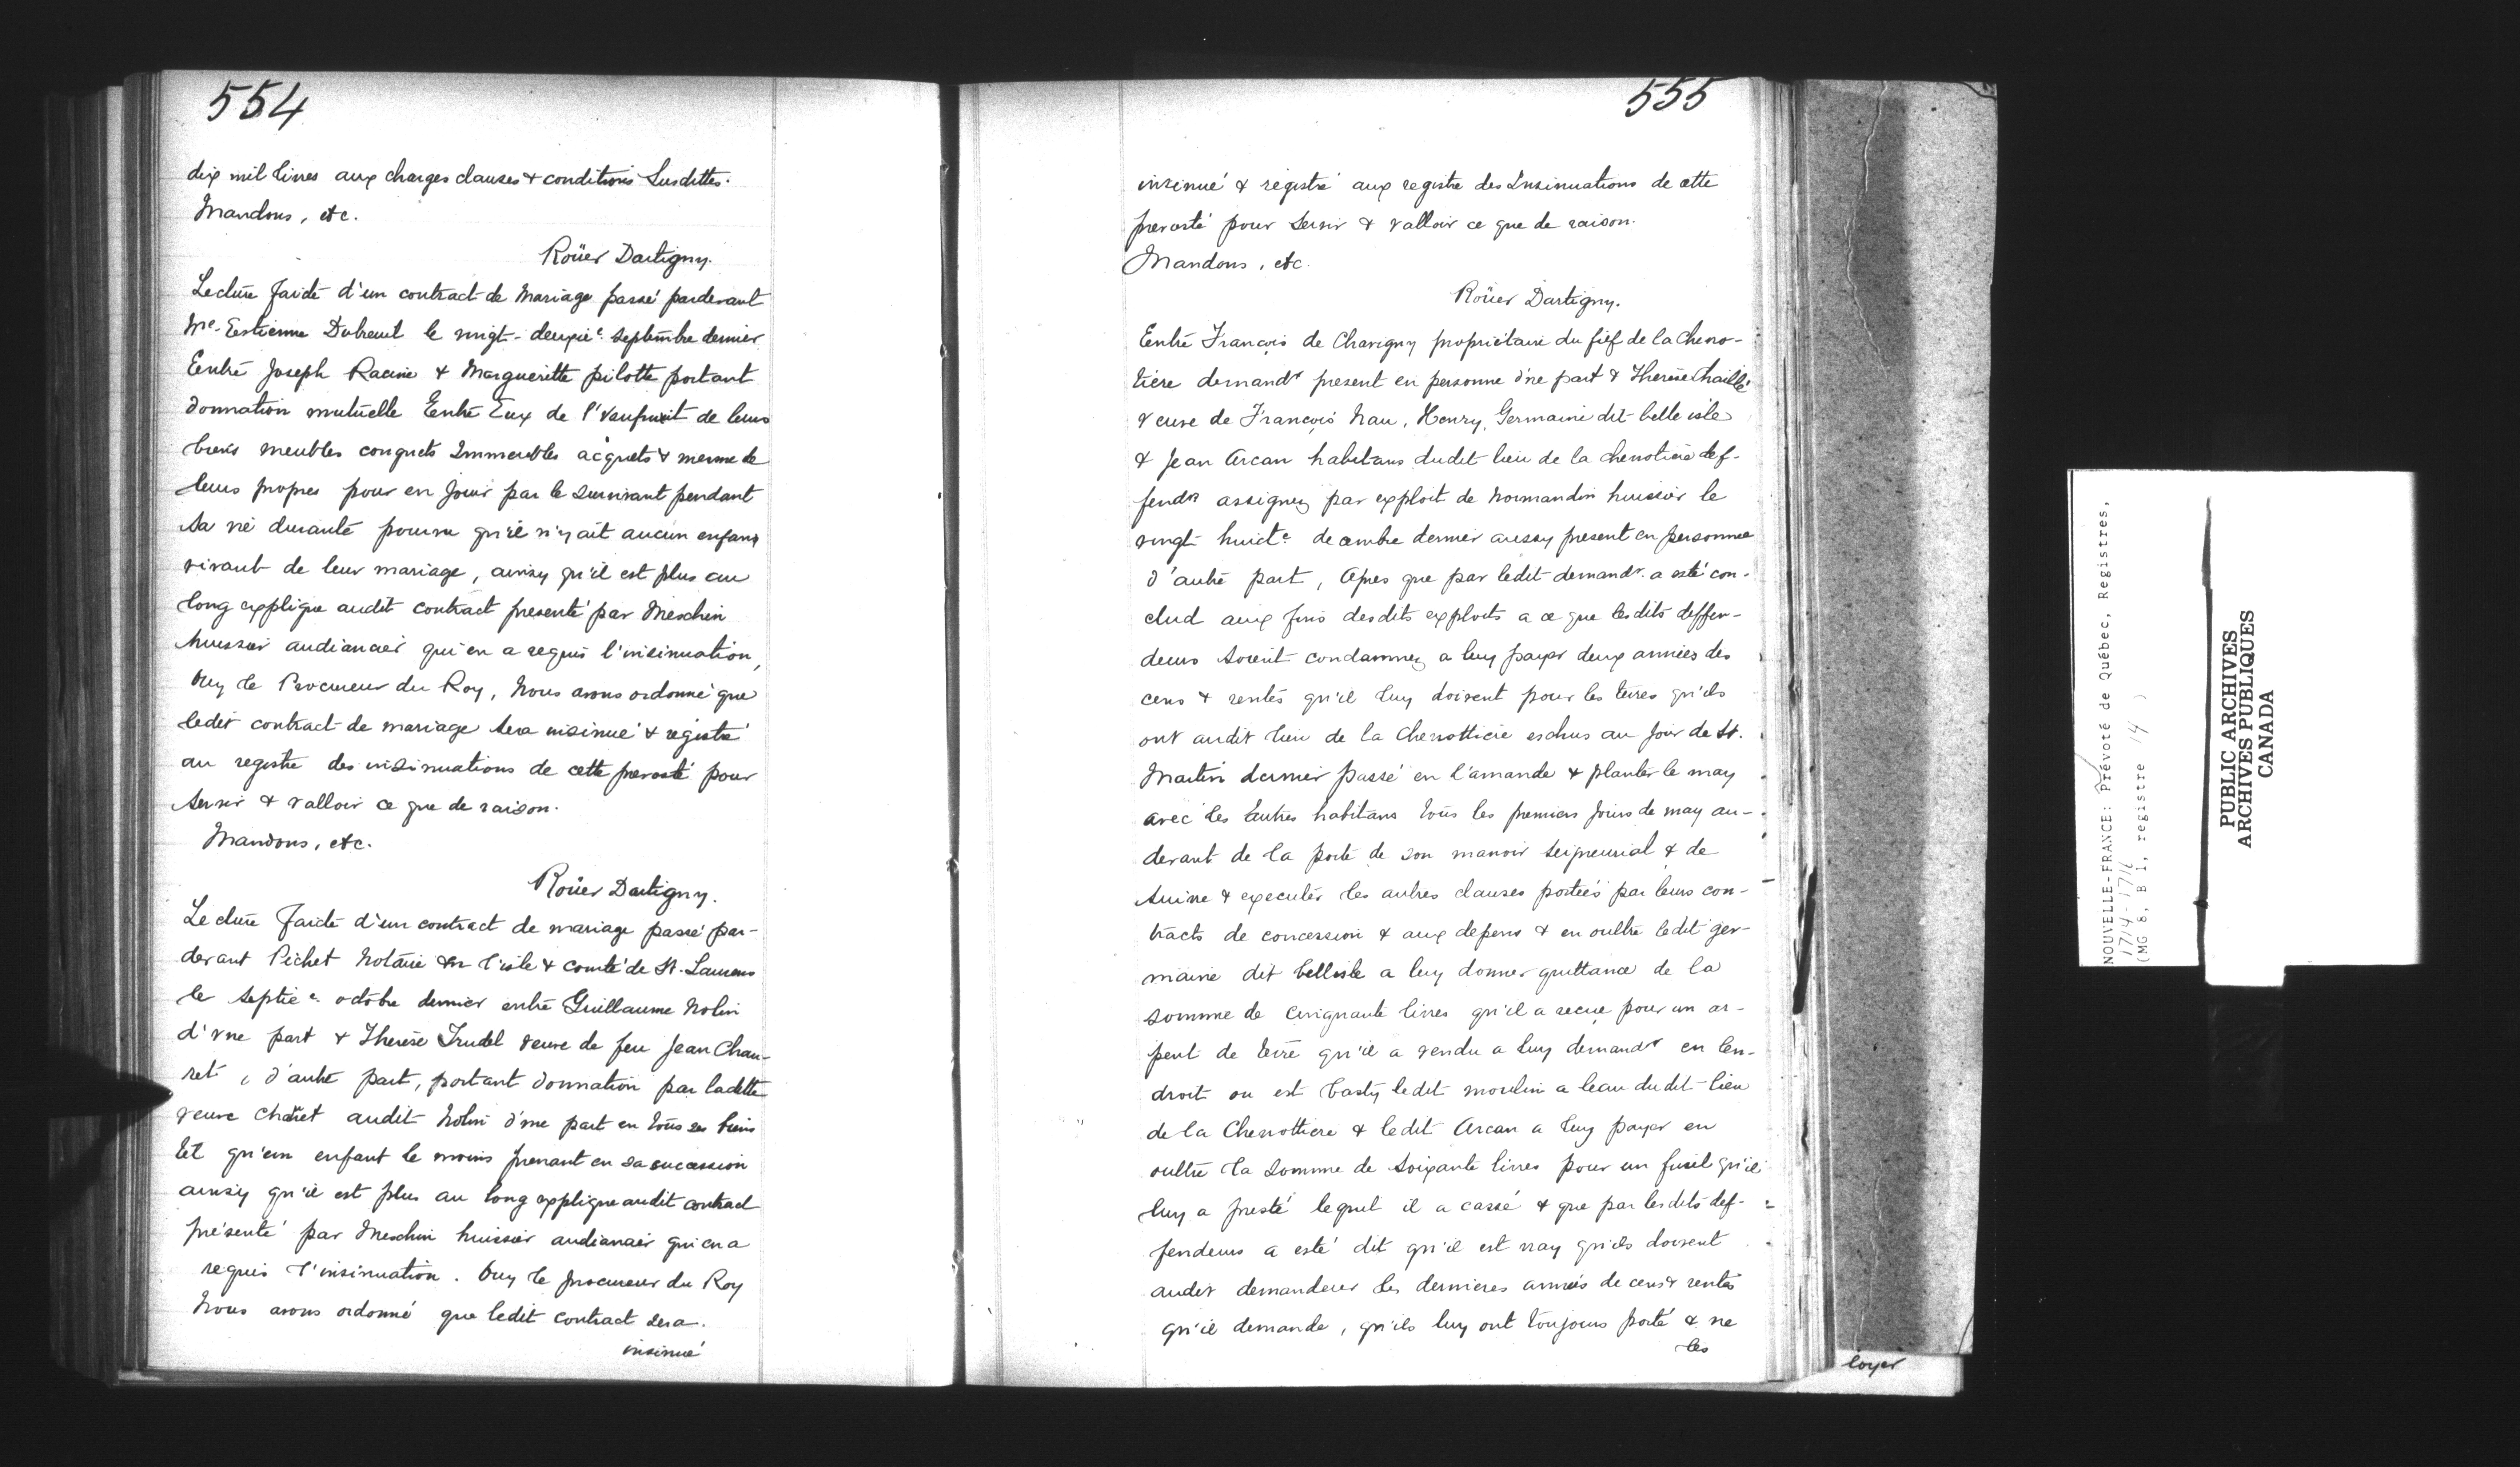 554
dix mil livres aux charges clauses & conditions Susdittes.
Mandons, etc.
Roüer Dartigny.
Lecture faicte d'un contract de Mariage passé pardevant
Me. Estienne Dubreuil le vingt-deuxie. septembre dernier
Entre Joseph Racine & Margueritte pilotte portant
donnation mutuelle Entre Eux de l'Vsufruit de leurs
biens meubles conquets Immeubles acquets & mesme de
leurs propres pour en Jouir par le survivant pendant
sa vie durante pourvu qu'il n'y ait aucun enfans
vivant de leur mariage, ainsy qu'il est plus au
long expliqué audit contract presenté par Meschin
huissier audiancier qui en a requis l'insinuation,
Ouy le Procureur du Roy, Nous avons ordonné que
ledit contract de mariage sera insinué & registré
au registre des insinuations de cette prevosté pour
servir & valloir ce que de raison.
Mandons, etc.
Roüer Dartigny.
Lecture faicte d'un contract de mariage passé par-
devant Pichet Notaire en l'isle & comté de St. Laurens
le septie. octobre dernier entre Guillaume Nolin
d'vne part & Therese Trudel veuve de feu Jean Chau-
ret, d'autre part, portant donnation par ladette
veuve Charet audit Nolin d'vne part en tous ses biens
tel qu'un enfant le moins prenant en sa succession
ainsy qu'il est plus au long expliqué audit contract
présenté par Meschin huissier audiancier qui en a
requis l'insinuation. Ouy le procureur du Roy
Nous avons ordonné que ledit contract sera.
insinué
555
insinué & registré aux registre des Insinuations de cette
prevosté pour servir & valloir ce que de raison.
Mandons, etc.
Roüer Dartigny.
Entre François de Chavigny propriétaire du fief de la Chevro-
tière demandr present en personne d'vne part & Therese Chaillé
veuve de François Nau, Henry, Germaine dit belle isle
& Jean Arcan habitans dudit lieu de la chevrotiere def-
fendrs assignez par exploit de Normandin huissier le
vingt huicte. decembre dernier aussy present en personne
d'autre part, Apres que par ledit demandr. a esté con-
clud aux fins desdits exploits a ce que lesdits deffen-
deurs soient condamnez a luy payer deux années des
cens & rentes qu'il luy doivent pour les terres qu'ils
ont audit lieu de la Chevrottiere eschus au Jour de St.
Martin dernier passé en l'amande & planter le may
avec les autres habitans tous les premiers Jours de may au-
devant de la porte de son manoir seigneurial & de
suivre & executer les autres clauses portées par leurs con-
tracts de concession & aux depens & en oultre ledit ger-
maine dit bellisle a luy donner quittance de la
somme de Cinquante livres qu'il a recue pour un ar-
pent de terre qu'il a vendu a luy demandr en len-
droit ou est basty ledit moulin a leau dudit lieu
de la Chevrottiere & ledit Arcan a luy payer en
oultre la somme de soixante livres pour un fusil qu'il
luy a presté lequel il a cassé & que par lesdits def-
fendeurs a esté dit qu'il est vray qu'ils doivent
audit demandeur les dernieres années de cens & rentes
qu'il demande, qu'ils luy ont toujours porté & ne
les
loyer
NOUVELLE-FRANCE: Prévoté de Québec, Registres,
1714-1716
(MG 8, B 1, registre 14 )
PUBLIC ARCHIVES
ARCHIVES PUBLIQUES
CANADA